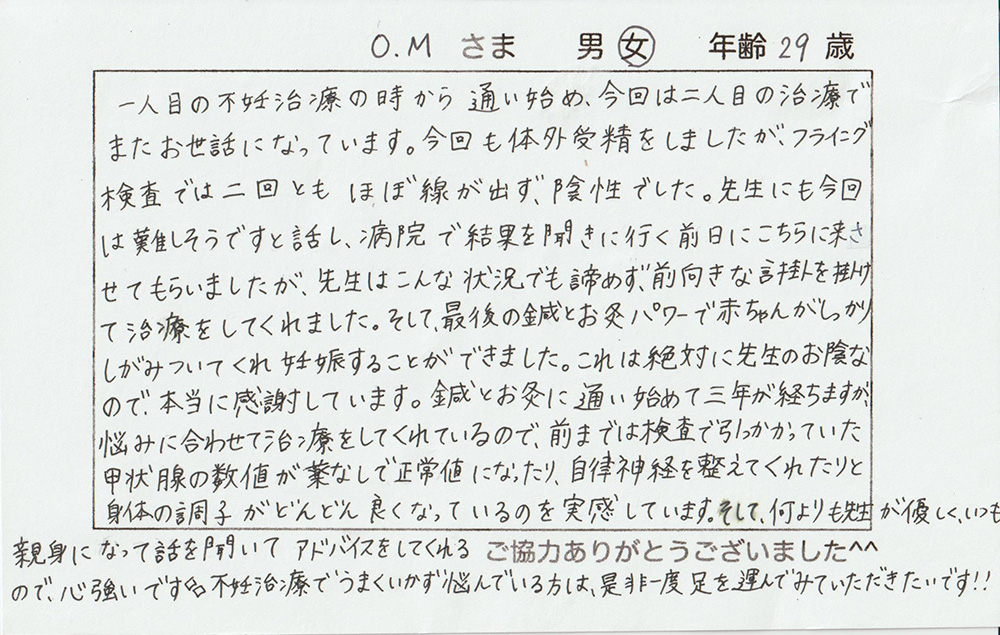 O.M さま 男 女 年齢 29 歳
一人目の不妊治療の時から 通い始め、今回は二人目の治療で
またお世話になっています。今回も体外受精をしましたが、フライング
検査では二回とも ほぼ線が出ず、陰性でした。先生にも今回
は難しそうですと話し、病院で結果を聞きに行く前日にこちらに来さ
せてもらいましたが、先生はこんな状況でも諦めず、前向きな言掛を掛け
て治療をしてくれました。そして、最後の鍼とお灸パワーで赤ちゃんがしっかり
しがみついてくれ妊娠することができました。これは絶対に先生のお陰な
ので、本当に感謝しています。鍼とお灸に通い始めて三年が経ちますが、
悩みに合わせて治療をしてくれているので、前までは検査で引っかかっていた
甲状腺の数値が薬なしで正常値になったり、自律神経を整えてくれたりと
身体の調子がどんどん良くなっているのを実感しています。そして、何よりも先生が優しく、いつも
親身になって話を聞いてアドバイスをしてくれる ご協力ありがとうございました^^
ので、心強いです 不妊治療でうまくいかず悩んでいる方は、是非一度足を運んでみていただきたいです!!